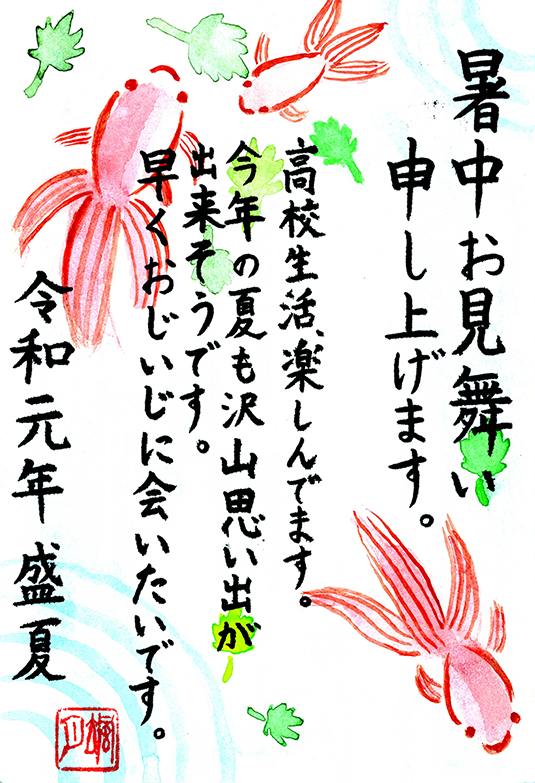 暑中お見舞い
申し上げます。
高校生活、楽しんでます。
今年の夏も沢山思い出が
出来そうです。
早くおじいじに会いたいです。
令和元年 盛夏